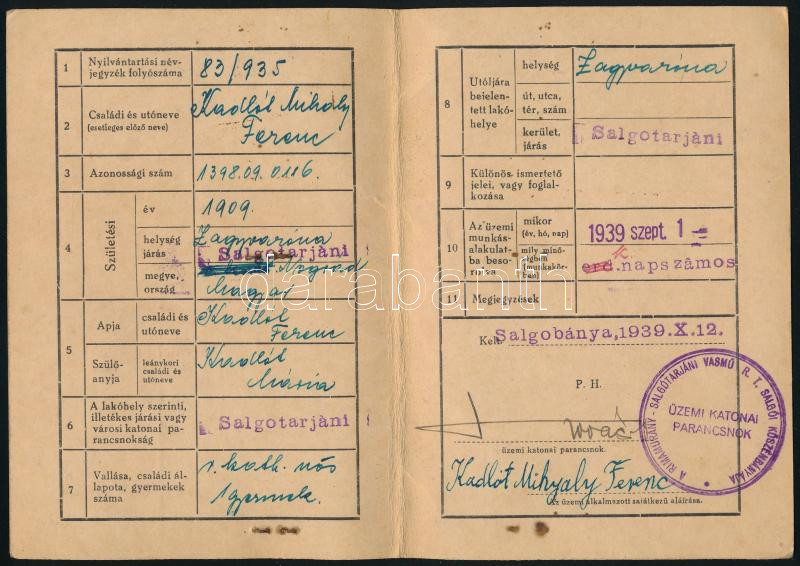 1
Nyilvántartási név-
jegyzék folyószáma
83/935
2
Családi és utóneve
(esetleges előző neve)
Kadlót Mihály
Ferenc
3
Azonossági szám
1398.09.0116.
4
Születési
év
1909.
helység
járás
Zagyvaróna
Salgotarjàni
megye,
ország
Nógrád
Magyar
5
Apja
családi és
utóneve
Kadlót
Ferenc
Szülő-
anyja
leánykori
családi és
utóneve
Kadlót
Mária
6
A lakóhely szerinti,
illetékes járási vagy
városi katonai pa-
rancsnokság
Salgotarjàni
7
Vallása, családi ál-
lapota, gyermekek
száma
r. kath. nős
1 gyermek.
8
Utóljára
bejelen-
tett lakó-
helye
helység
Zagyvaróna
út, utca,
tér, szám
kerület,
járás
Salgotarjàni
9
Különös ismertető
jelei, vagy foglal-
kozása
10
Az üzemi
munkás-
alakulat-
ba beso-
rolva
mikor
(év, hó, nap)
1939 szept. 1 -
mily minő-
ségben
(munkakör-
ben)
erd. napszámos
11
Megjegyzések
Kelt Salgobánya,1939.X.12.
P. H.
üzemi katonai parancsnok.
A RIMAMURÁNY-SALGÓTARJÁNI VASMŰ R. T. SALGÓI KŐSZÉNBÁNYÁJA
ÜZEMI KATONAI
PARANCSNOK
Kadlót Mihyaly Ferenc
Az üzemi alkalmazott sajátkezű aláírása.
darabanth